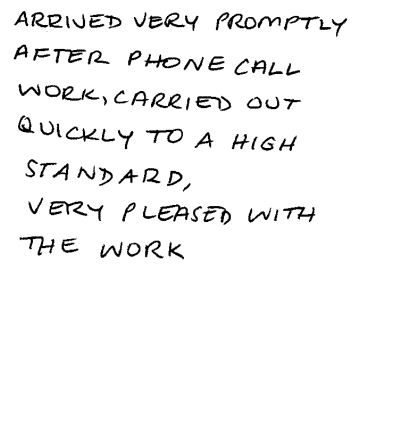 ARRIVED VERY PROMPTLY
AFTER PHONE CALL
WORK, CARRIED OUT
QUICKLY TO A HIGH
STANDARD,
VERY PLEASED WITH
THE WORK